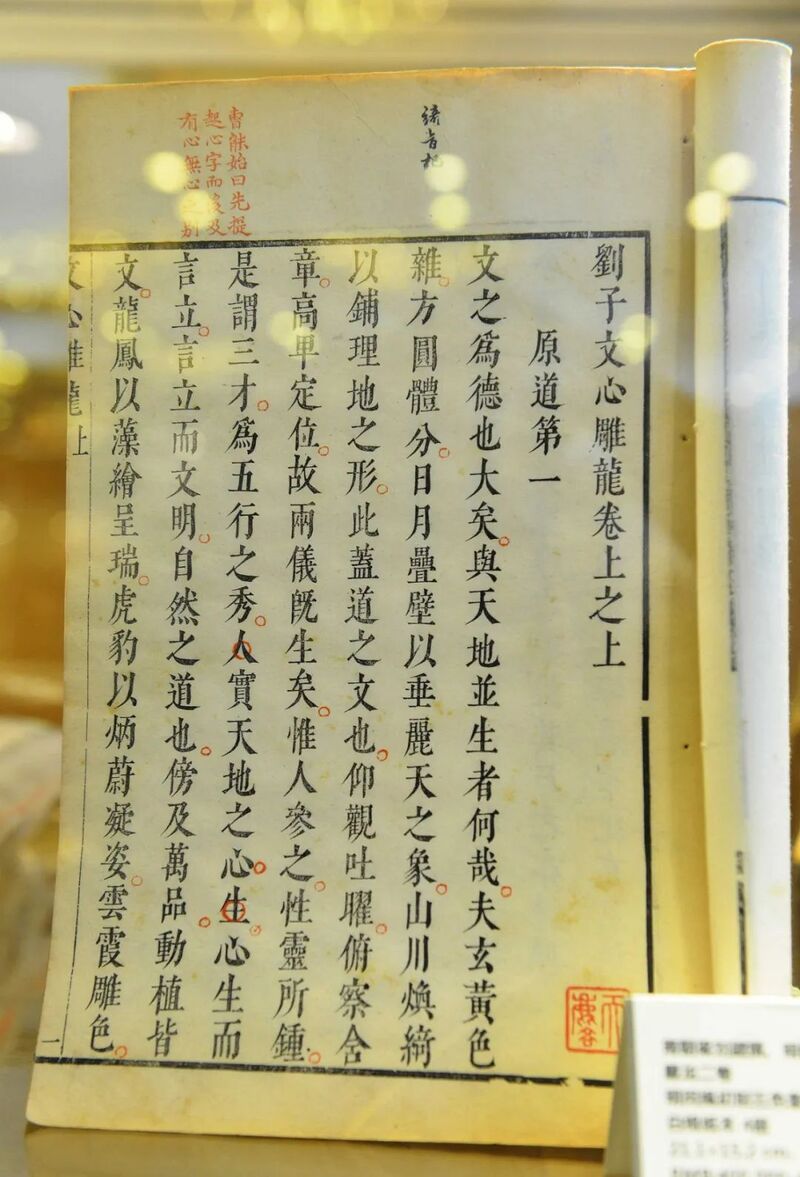 綺音杞
曹能始曰先提
起心字而後及
有心無心之別
劉子文心雕龍卷上之上
原道第一
文之爲德也大矣與天地並生者何哉夫玄黃色
雜方圓體分日月疊璧以垂麗天之象山川煥綺
以鋪理地之形此蓋道之文也仰觀吐曜俯察含
章高卑定位故兩儀既生矣惟人參之性靈所鍾
是謂三才爲五行之秀人實天地之心生心生而
言立言立而文明自然之道也傍及萬品動植皆
文龍鳳以藻繪呈瑞虎豹以炳蔚凝姿雲霞雕色
文心雕龍 上 一